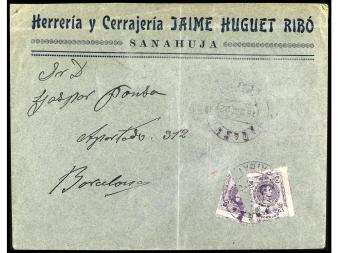 Herrería y Cerrajería JAIME HUGUET RIBÓ
SANAHUJA
Sr D
Gaspar
Apartado. 312
Barcelona